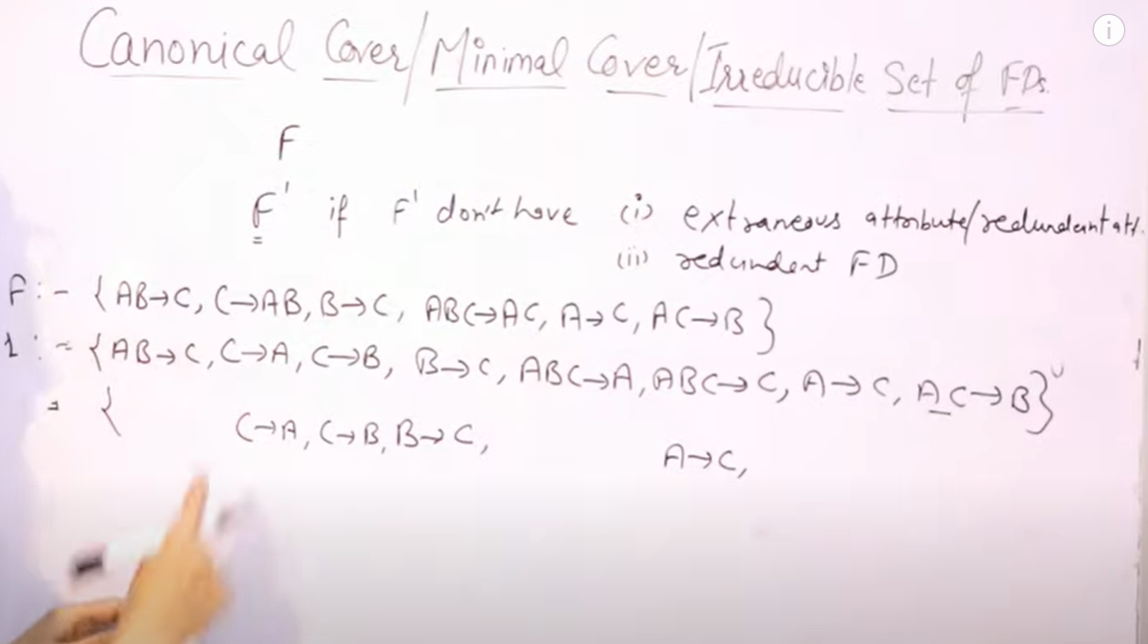 Canonical Cover/Minimal Cover/Irreducible Set of FDs
F
F' if F' don't have (i) extraneous attribute/redundant att.
(ii) redundent FD
F :- {AB→C, C→AB, B→C, ABC→AC, A→C, AC→B}
1 :- {AB→C, C→A, C→B, B→C, ABC→A, ABC→C, A→C, AC→B}
= {
C→A, C→B, B→C,
A→C,